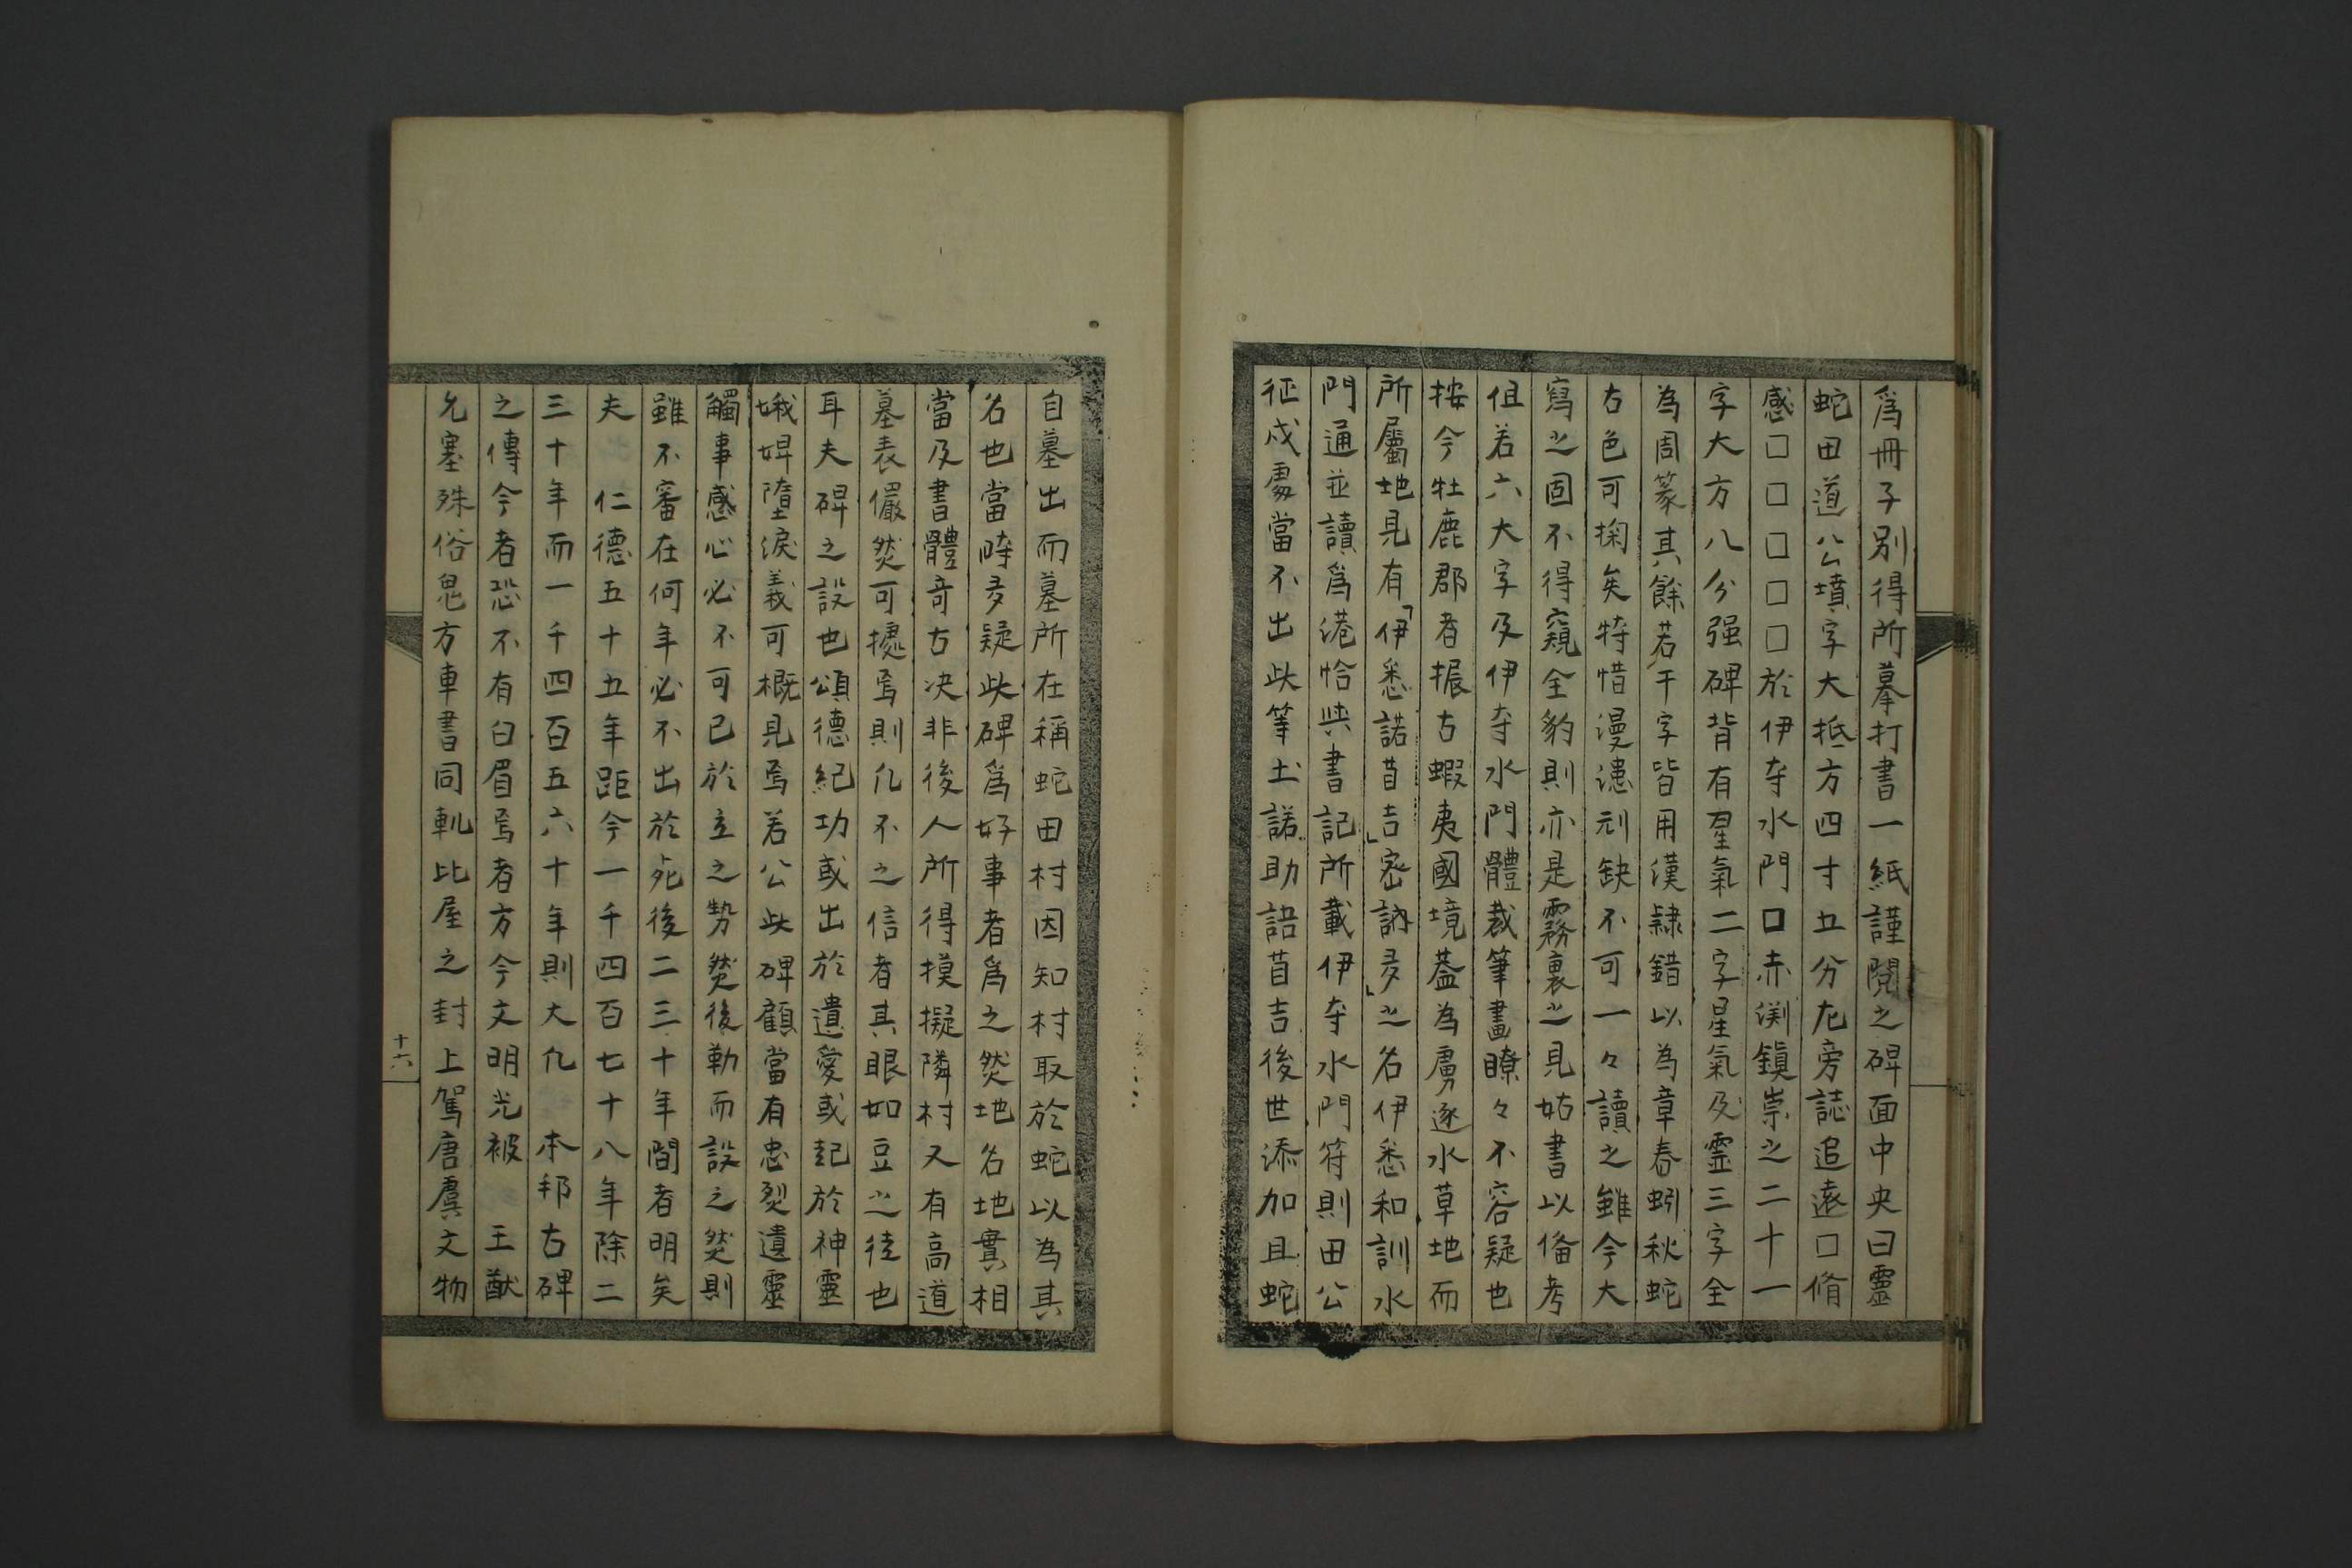 爲冊子別得所摹打書一紙謹閲之碑面中央曰靈
蛇田道公墳字大抵方四寸五分左旁誌追遠□脩
感□□□□□於伊寺水門口赤渕鎭崇之二十一
字大方八分强碑背有星氣二字星氣及霊三字全
為周篆其餘若干字皆用漢隷錯以為章春蚓秋蛇
古色可掬矣特惜漫漶刓缺不可一々讀之雖今大
寫之固不得窺全豹則亦是霧裏之見姑書以俻考
但若六大字及伊寺水門體裁筆畫瞭々不容疑也
按今牡鹿郡者振古蝦夷國境葢為虜逐水草地而
所屬地見有「伊悉諾昔吉」「密訥多」之名伊悉和訓水
門通並讀爲港恰與書記所載伊寺水門符則田公
征戍處當不出此等土諾助語昔吉後世添加且蛇
自墓出而墓所在稱蛇田村因知村取於蛇以為其
名也當時多疑此碑爲好事者爲之然地名地實相
當及書體奇古决非後人所得摸擬隣村又有高道
墓表儼然可據焉則凢不之信者其眼如豆之徒也
耳夫碑之設也頌德紀功或出於遺愛或起於神靈
娥婢墮淚義可概見焉若公此碑顧當有忠烈遺靈
觸事感心必不可已於立之勢然後勒而設之然則
雖不審在何年必不出於死後二三十年間者明矣
夫　仁德五十五年距今一千四百七十八年除二
三十年而一千四百五六十年則大凢　本邦古碑
之傳今者恐不有白眉焉者方今文明光被　王猷
允塞殊俗鬼方車書同軌比屋之封上駕唐虞文物
十六